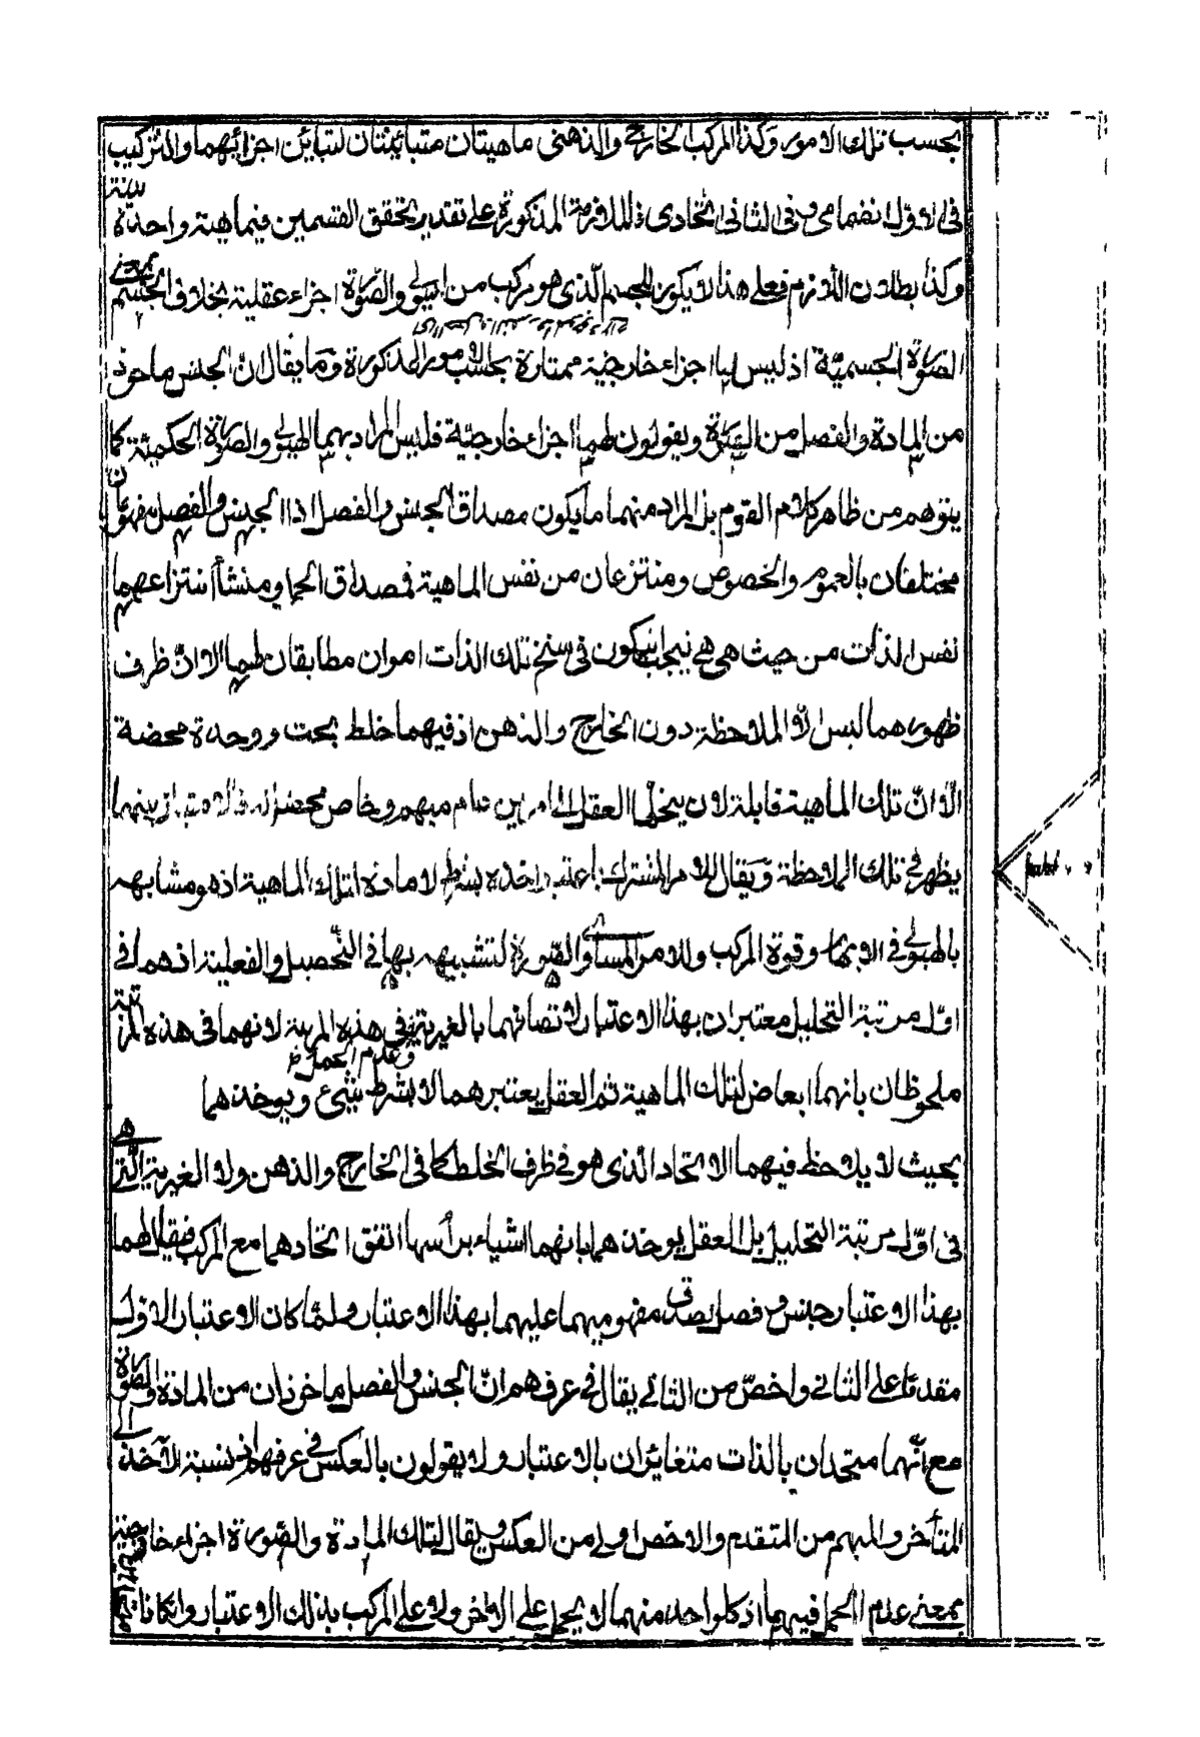 بحسب تلك الامور وكذا المركب الخارجي والذهنى ماهيتان متبائنتان لتبائن اجزائهما والتركيب
فى الاول انضمامى وفى الثانى اتحادى فالملازمة المذكورة على تقدير تحقق القسمين فيماهية واحدة بينة
وكذا بطلان اللازم فعلى هذا لا يكون للجسم الذى هو مركب من الهيولى والصورة اجزاء عقلية بخلاف الجسم بمعنى
الصورة الجسمية اذ ليس لها اجزاء خارجية ممتازة بحسب الامور المذكورة وما يقال ان الجنس ماخوذ
من المادة والفصل من الصورة ويقولون لهما اجزاء خارجية فليس المراد بهما الهيولى والصورة الحكمية كما
يتوهم من ظاهر كلام القوم بل المراد منهما ما يكون مصداق الجنس والفصل اذ الجنس والفصل مفهومان
مختلفان بالعموم والخصوص ومنتزعان من نفس الماهية فمصداق الحمل ومنشأ انتزاعهما
نفس الذات من حيث هى هى فيجب ان يكون فى سنخ تلك الذات امران مطابقان لهما الا ان ظرف
ظهورهما ليس الا الملاحظة دون الخارج والذهن اذ فيهما خلط بحت ووحدة محضة
الا ان تلك الماهية قابلة لان يحللها العقل الى امرين عام مبهم وخاص محصل له فالامتياز بينهما
يظهر فى تلك الملاحظة ويقال للامر المشترك باعتبار اخذه بشرط لا مادة لتلك الماهية اذ هو مشابه
بالهيولى فى الابهام وقوة المركب وللامر المساوى الصورة لتشبيهه بها فى التحصيل والفعلية اذ هما فى
اول مرتبة التحليل معتبران بهذا الاعتبار لاتصافهما بالغيرية فى هذه المرتبة لانهما فى هذه المرتبة
وعدم الحمل
ملحوظان بانهما ابعاض لتلك الماهية ثم العقل يعتبرهما لا بشرط شيء ويوخذهما
بحيث لا يلاحظ فيهما الاتحاد الذى هو فى ظرف الخلط كما فى الخارج والذهن ولا الغيرية التى هى
فى اول مرتبة التحليل بل العقل يوخذهما بانهما اشياء برأسها اتفق اتحادهما مع المركب فيقال لهما
بهذا الاعتبار جنس وفصل يصدق مفهوميهما عليهما بهذا الاعتبار ولما كان الاعتبار الاول
مقدما على الثانى واخص من الثانى يقال فى عرفهم ان الجنس والفصل ماخوذان من المادة والصورة
مع انهما متحدان بالذات متغايران بالاعتبار ولا يقولون بالعكس فى عرفهم اذ نسبة الاخذ الى
المتأخر والمبهم من المتقدم والاخص اولى من العكس ويقال لتلك المادة والصورة اجزاء خارجية
بمعنى عدم الحمل فيهما اذ كل واحد منهما لا يحمل على الاخر ولا على المركب بذلك الاعتبار وان كانا